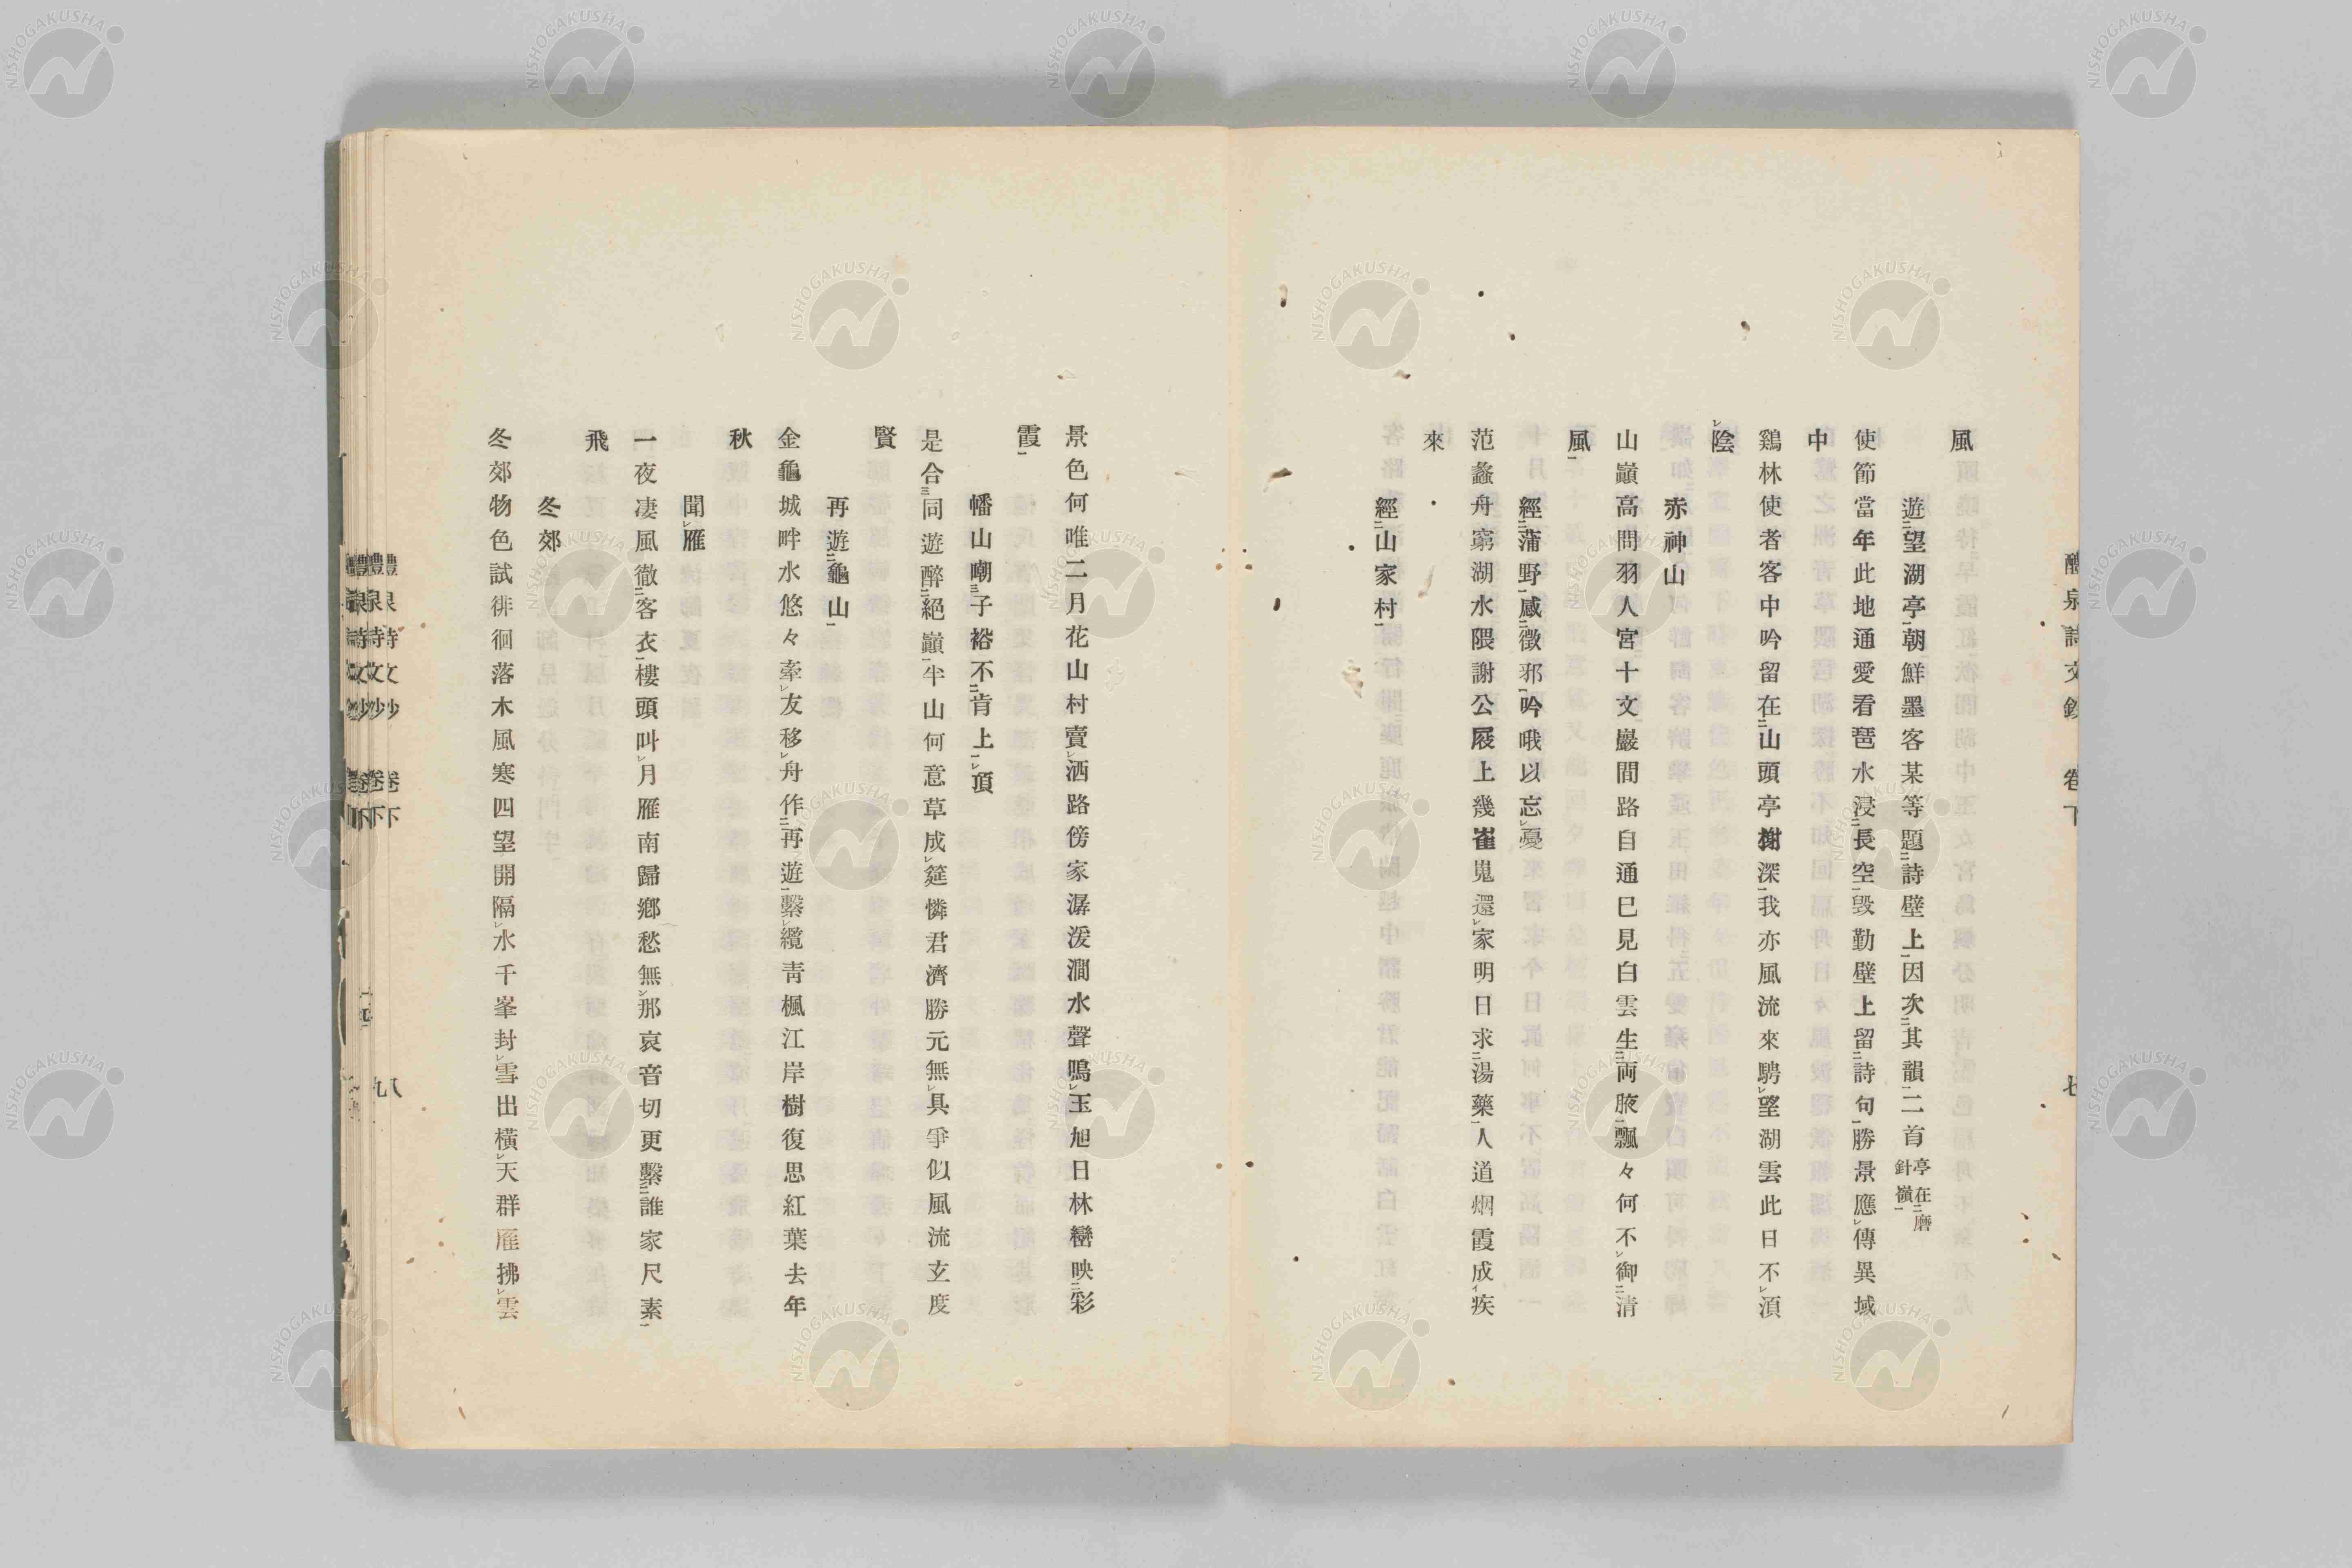 風
遊望湖亭朝鮮墨客某等題詩壁上因次其韻二首 亭在磨針嶺
使節當年此地通愛看琶水浸長空毀勤壁上留詩句勝景應傳異域
中
鷄林使者客中吟留在山頭亭榭深我亦風流來騁望湖雲此日不湏
陰
赤神山
山巓高問羽人宮十文巖間路自通已見白雲生両腋飄々何不御清
風
經蒲野感徴邪吟哦以忘憂
范蠡舟窮湖水隈謝公屐上幾崔嵬還家明日求湯藥人道烟霞成疾
來
經山家村
景色何唯二月花山村賣酒路傍家潺湲澗水聲鳴玉旭日林巒映彩
霞
幡山嘲子裕不肯上頂
是合同遊醉絕巓半山何意草成筵憐君濟勝元無具爭似風流玄度
賢
再遊龜山
金龜城畔水悠々牽友移舟作再遊繫纜青楓江岸樹復思紅葉去年
秋
聞雁
一夜凄風徹客衣樓頭叫月雁南歸鄉愁無那哀音切更繫誰家尺素
飛
冬郊
冬郊物色試徘徊落木風寒四望開隔水千峯封雪出橫天群雁拂雲
醴泉詩文鈔 卷下 七